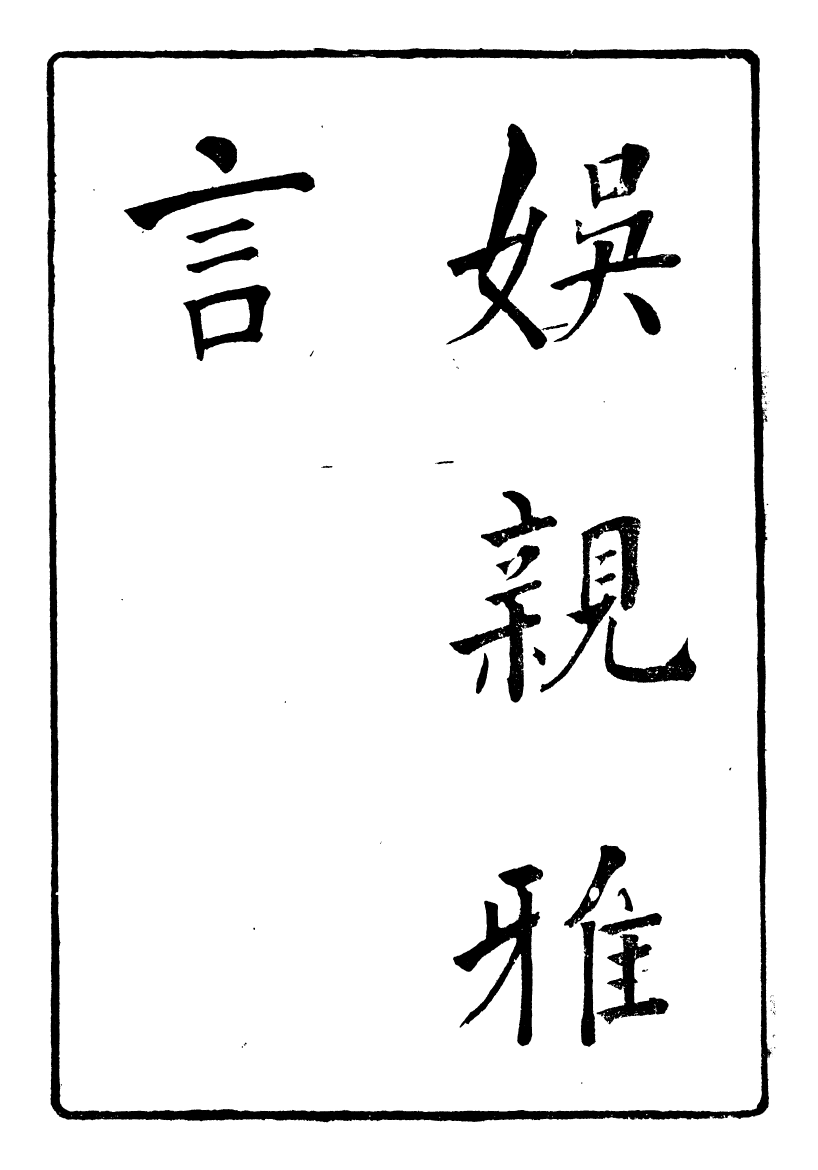 娛親雅
言